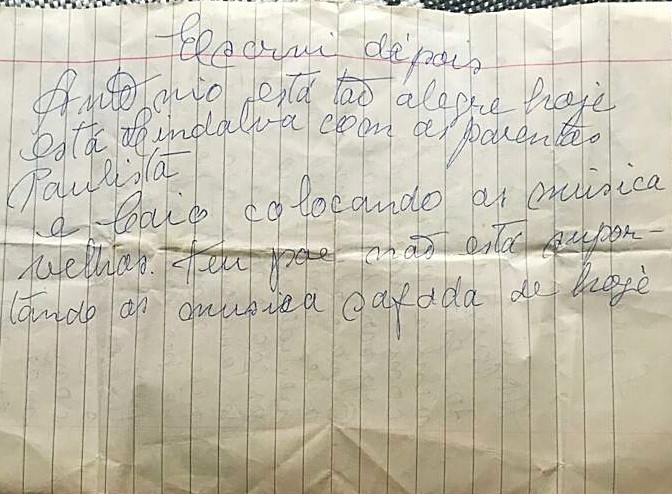 Escrevi dépois
Antõnio está tão alegre hoje
está Lindalva com as parentas
Paulistã
e Caio colocando as música
velhas. Teu pae não está supor-
tando as musica safada de hoje